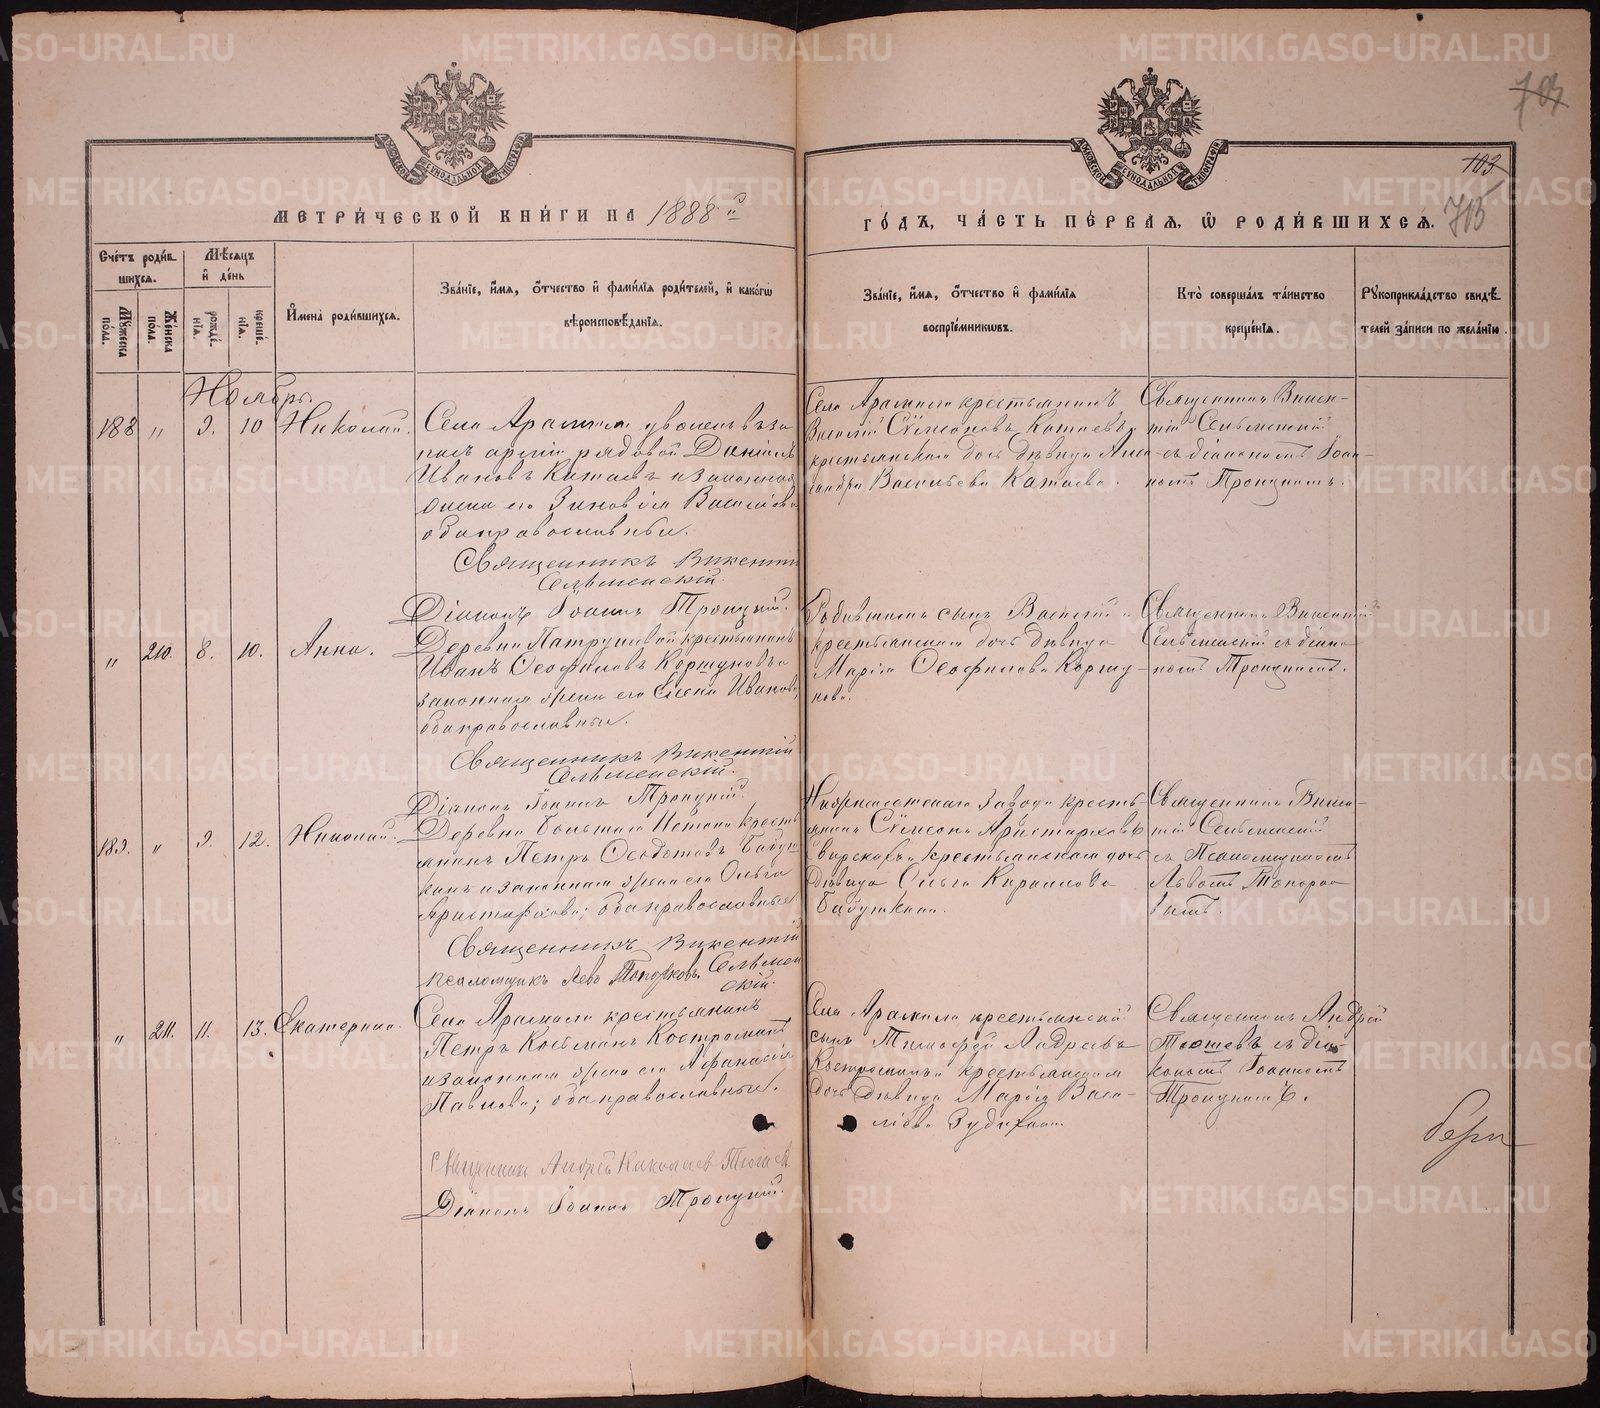 703
103
715
МЕТРИ́ЧЕСКОЙ КНИ́ГИ НА 1888.
ГО́ДЪ, ЧА́СТЬ ПЕ́РВАЯ, Ѽ РОДИ́ВШИХСѦ.
Сче́тъ роди́в-
шихся.
Мꙋжеска по́ла.
Же́нска по́ла.
Мѣ́сяцъ
и҆ де́нь
рожде́нїѧ.
креще́нїѧ.
И҆мена̀ роди́вшихся.
Зва́нїе, и҆́мя, ѻ҆́тчество и҆ фами́лїя роди́телей, и҆ како́гѡ
вѣроисповѣ́данїя.
Зва́нїе, и҆́мя, ѻ҆́тчество и҆ фами́лїя
воспрїе́мникѡвъ.
Кто̀ соверша́лъ та́инство
креще́нїя.
Рꙋкоприкла́дство свидѣ́-
телей за́писи по жела́нїю.
Ноябрь.
188 „ 9. 10 Николай.
Села Арамили уволенъ въ за
пасъ арміи рядовой Даніилъ
Ивановъ Катаевъ и законная
жена его Зиновія Василіева
оба православные.
Священникъ Викентій
Сельменскій.
Діаконъ Іоаннъ Троицкій.
Села Арамили крестьянинъ
Василій Сѵмеоновъ Катаевъ и
крестьянская дочь дѣвица Алек-
сандра Васильева Катаева.
Священникъ Викен-
тій Сельменскій
съ діакономъ Іоан-
номъ Троицкимъ.
„ 210. 8. 10. Анна.
Деревни Патрушевой крестьянинъ
Иванъ Ѳеофиловъ Коршуновъ и
законная жена его Елена Иванова,
оба православные.
Священникъ Викентій
Сельменскій.
Діаконъ Іоаннъ Троицкій.
Родившихъ сынъ Василій и
крестьянская дочь дѣвица
Марія Ѳеофилова Коршу-
нова.
Священникъ Викентій
Сельменскій съ діако-
номъ Троицкимъ.
189. „ 9. 12. Николай.
Деревни Большаго Истока кресть
янинъ Петръ Ѳеодотовъ Бабуш
кинъ и законная жена его Ольга
Аристархова; оба православные.
Священникъ Викентій
Сельмен
скій.
псаломщикъ Левъ Топорковъ.
Нижнеисетскаго завода кресть-
янинъ Сѵмеонъ Аристарховъ
крестьянская дочь
дѣвица Ольга Кириллова
Бабушкина.
Священникъ Викен-
тій Сельменскій
съ Псаломщикомъ
Львомъ Топорко-
вымъ.
„ 211. 11. 13. Екатерина.
Села Арамили крестьянинъ
Петръ Косьминъ Костроминъ
и законная жена его Афанасія
Павлова; оба православные.
Священникъ Андрей Николаев Тюшев
Діаконъ Іоаннъ Троицкій.
Села Арамили крестьянскій
сынъ Тимофей Андреевъ
Костроминъ и крестьянская
дочь дѣвица Марія Васи-
ліева Зудихина.
Священникъ Андрей
Тюшевъ съ діа-
кономъ Іоанномъ
Троицкимъ.
METRIKI.GASO-URAL.RU